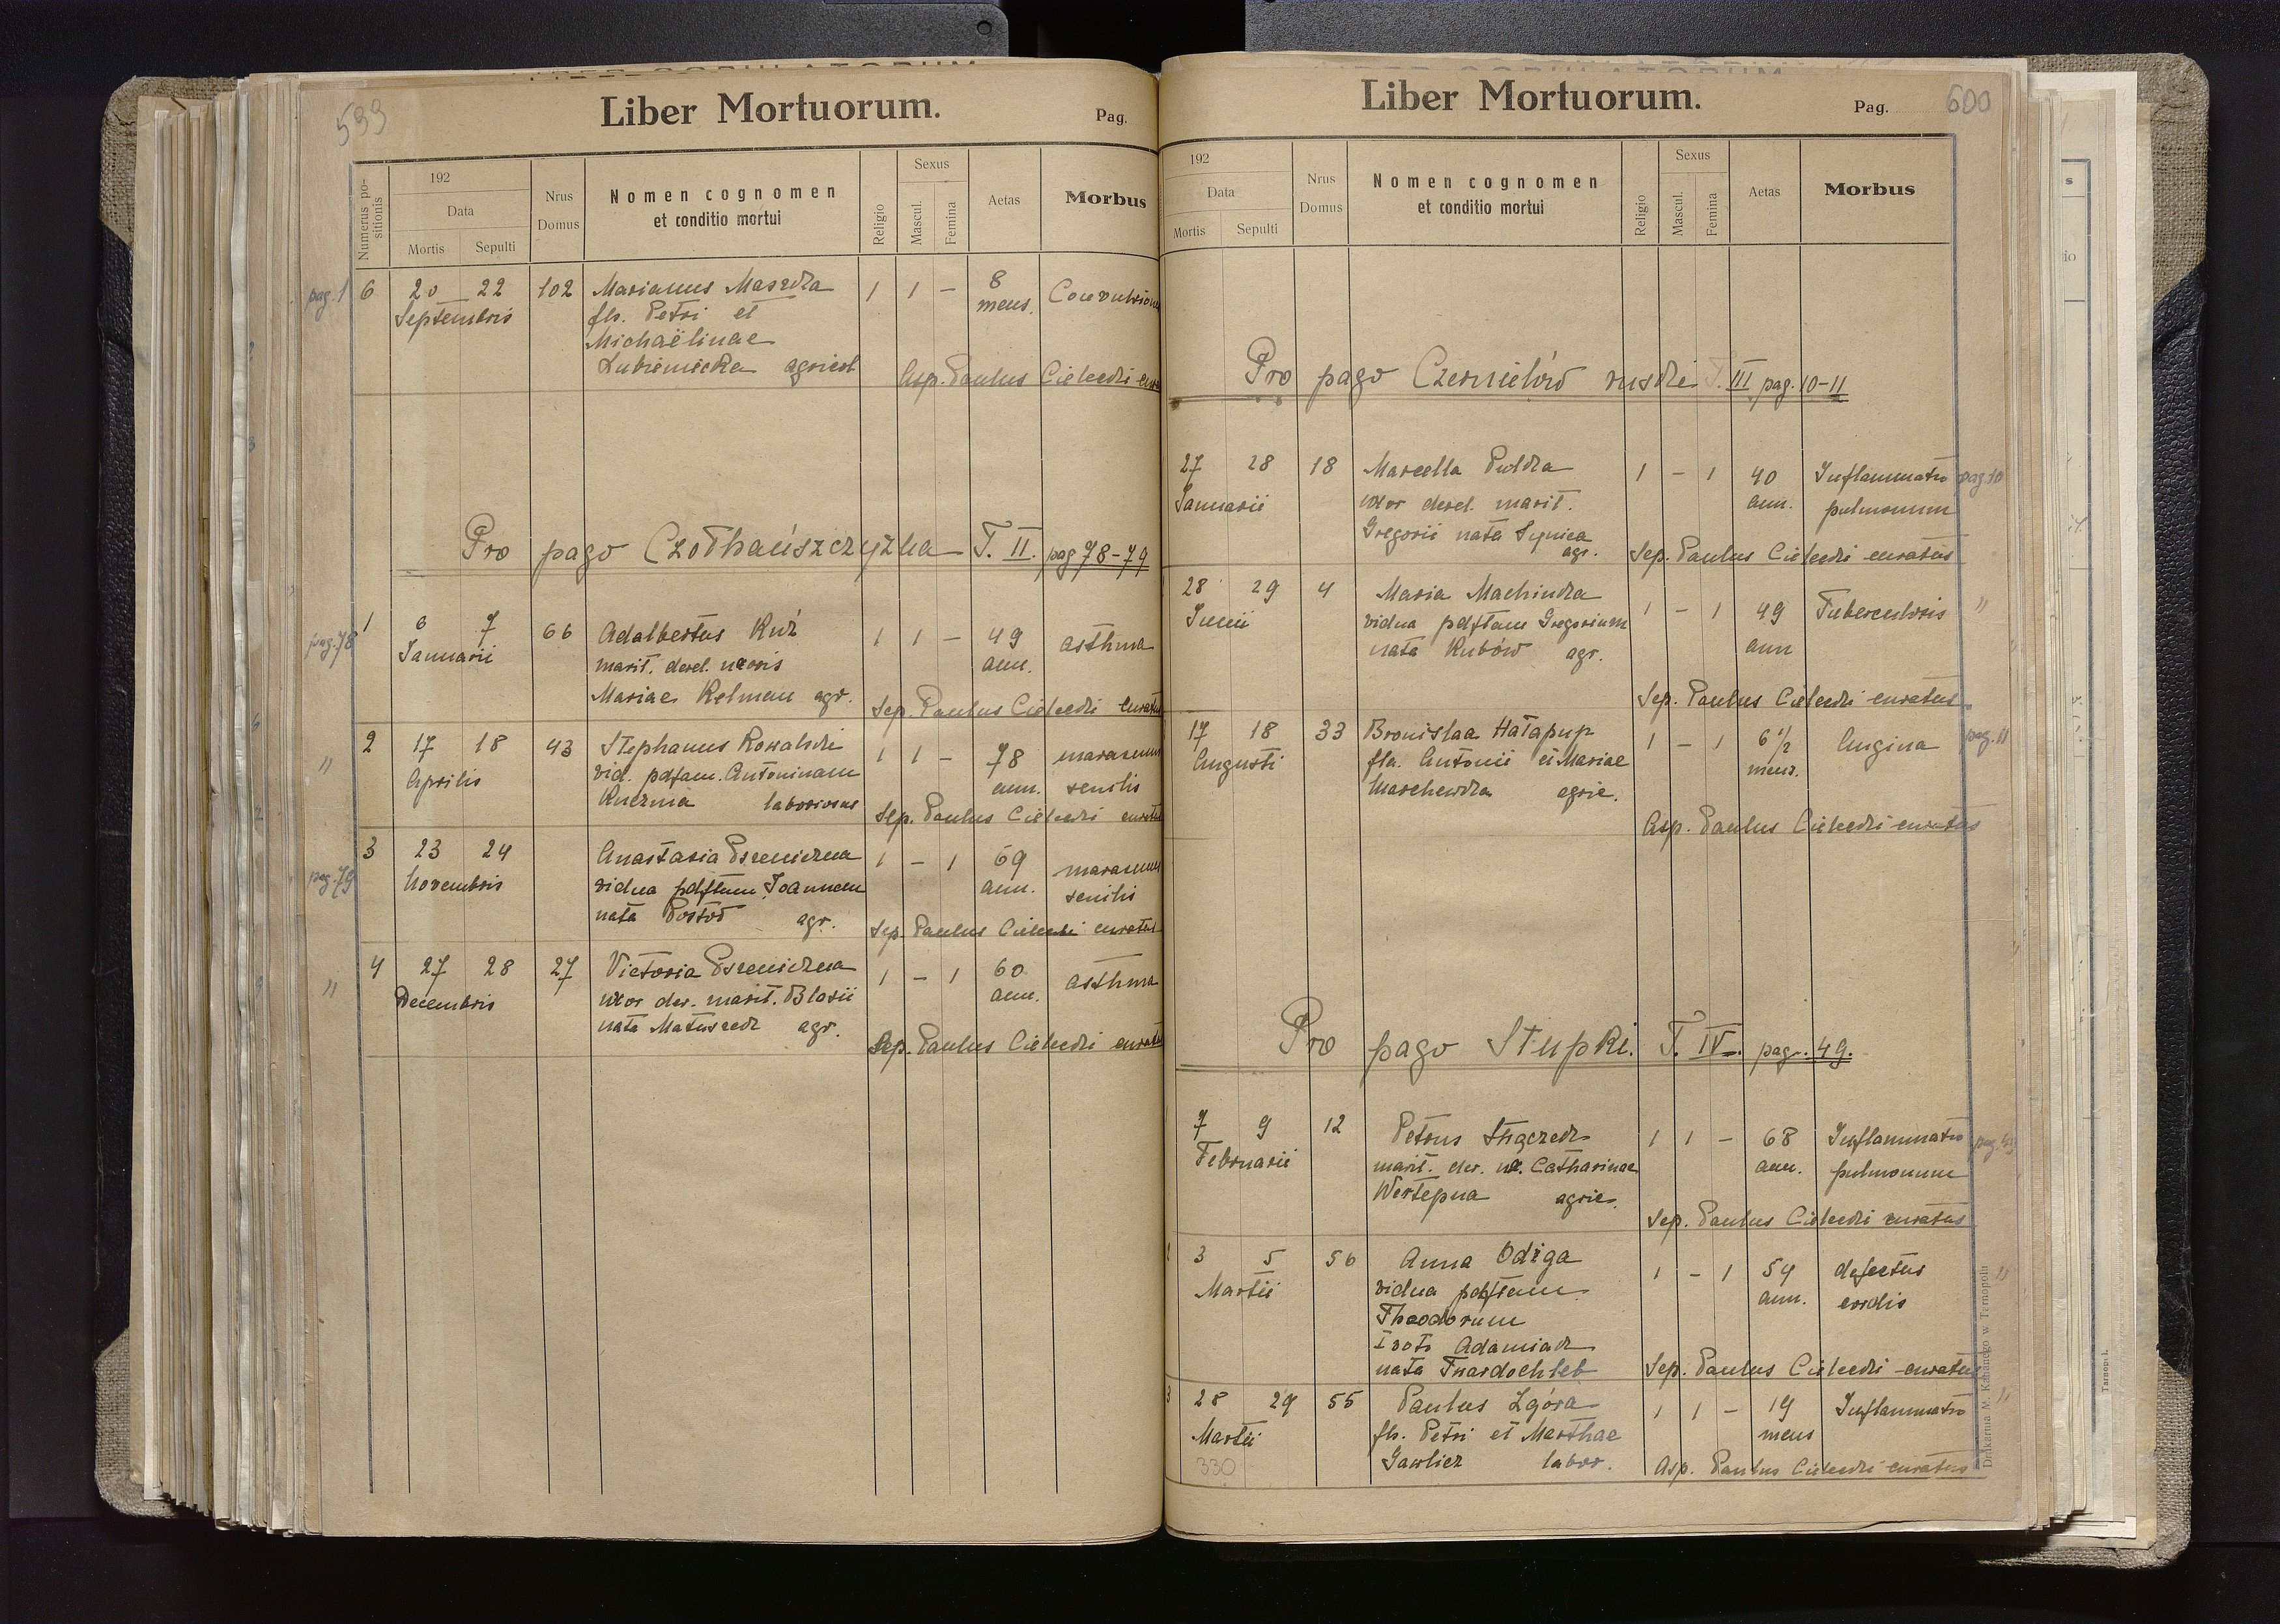 599
Liber Mortuorum.
Pag.
Numerus positionis
192
Data
Mortis
Sepulti
Nrus Domus
Nomen cognomen
et conditio mortui
Religio
Sexus
Mascul.
Femina
Aetas
Morbus
pag. 1 6 20 22 102 Marianus 1 1 — 8
Septembris fls. Petri et mens.
Michaëlinae
agricol Asp. Paulus
Pro pago T. II. pag 78-79
pag. 78 1 6 7 66 Adalbertus Kuź 1 1 — 49 asthma
Januarii marit. derel. uxoris ann.
Mariae Kelman agr. Sep. Paulus Cielecki curatus
" 2 17 18 43 Stephanus Kowalski 1 1 — 78
Aprilis vid. Antoninam ann. senilis
Kuzma laboriosus Sep. Paulus Cielecki curatus
pag. 79 3 23 24 Anastasia Pszeniczna 1 — 1 69
Novembris vidua pdftum Joannem ann. senilis
nata Postoł agr. Sep. Paulus Cielecki curatus
" 4 27 28 27 Victoria Pszeniczna 1 — 1 60 asthma
Decembris uxor der. marit. Blasii ann.
nata Matuszek agr. Sep. Paulus Cielecki curatus
600
Liber Mortuorum.
Pag.
192
Data
Mortis
Sepulti
Nrus Domus
Nomen cognomen
et conditio mortui
Religio
Sexus
Mascul.
Femina
Aetas
Morbus
Pro pago Czernielów ruski T. III pag. 10-11
27 28 18 Marcella 1 — 1 40 Inflammatio pag. 10
Januarii uxor derel. marit. ann. pulmonum
Gregorii nata
agr. Sep. Paulus Cielecki curatus
28 29 4 Maria Machinka 1 — 1 49 Tuberculosis "
Junii vidua pdftum Gregorium ann
nata Kubów agr.
Sep. Paulus Cielecki curatus
17 18 33 Bronislaa Hałapup 1 — 1 6 1/2 Angina pag. 11
Augusti fla. Antonii et Mariae mens.
Marchewka agric.
Asp. Paulus Cielecki curatus
Pro pago Stupki. T. IV. pag. 49.
7 9 12 Petrus 1 1 — 68 Inflammatio pag. 49
Februarii marit. der. ux. Catharinae ann. pulmonum
Wertepna agric.
Sep. Paulus Cielecki curatus
2 3 5 56 Anna Odyga 1 — 1 54 defectus "
Martii vidua pdftum ann. cordis
Theodorum
I voto Adamiak
nata Twardochleb Sep. Paulus Cielecki curatus
3 28 29 55 Paulus Zgóra 1 1 — 19 Inflammatio "
Martii fls. Petri et Marthae mens
330 Gawlicz labor. Asp. Paulus Cielecki curatus
Drukarnia M. Kahanego w Tarnopolu